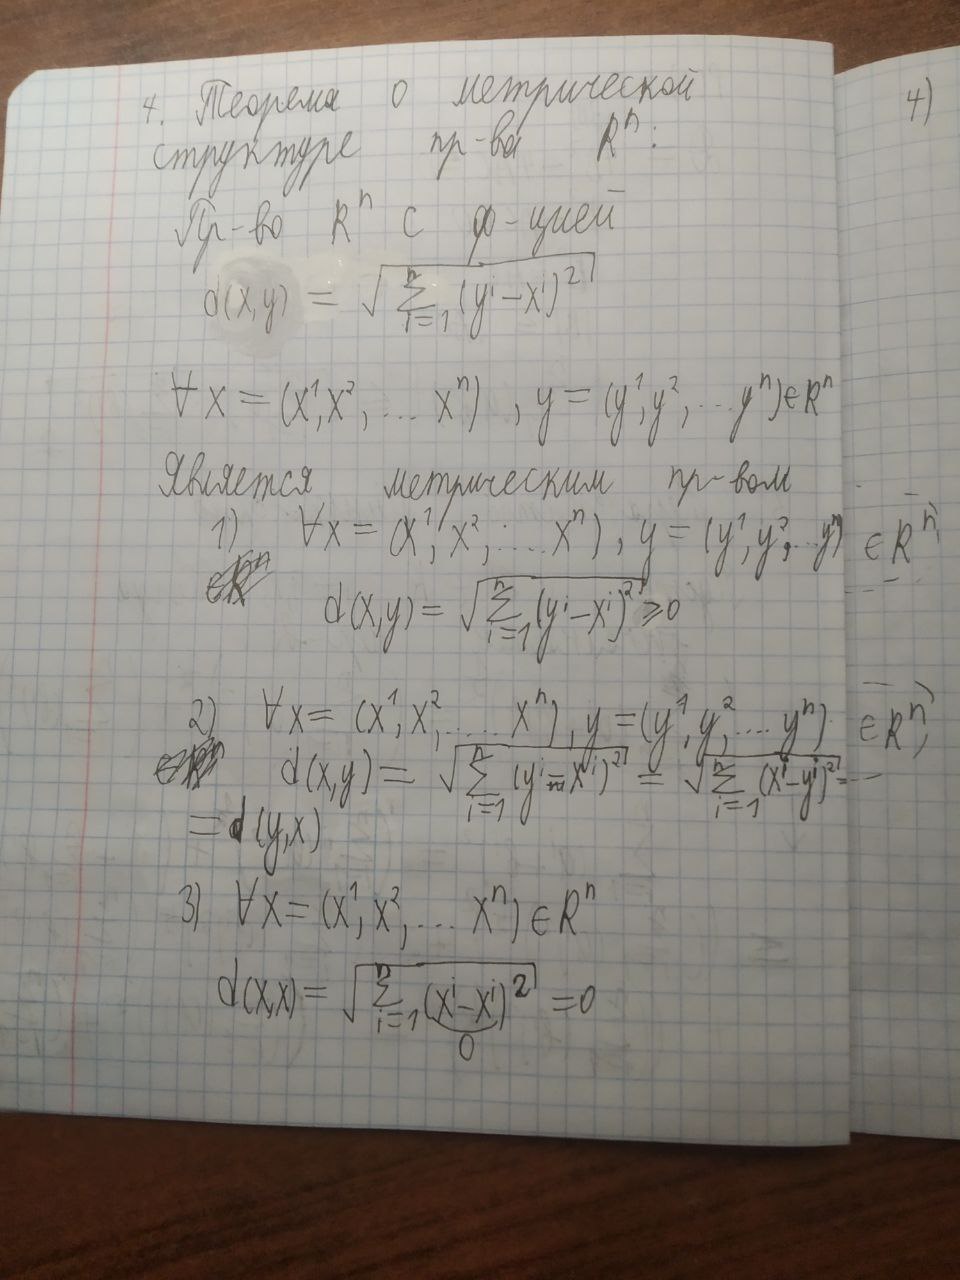 4. Теорема о метрической
структуре пр-ва Rⁿ:
Пр-во Rⁿ с ф-цией
d(x,y) = √(∑ᵢ₌₁ⁿ (yⁱ-xⁱ)²)
∀ x = (x¹, x², ... xⁿ), y = (y¹, y², ... yⁿ) ∈ Rⁿ
Является метрическим пр-вом
1) ∀x = (x¹, x², .... xⁿ), y = (y¹, y², ... yⁿ) ∈ Rⁿ,
d(x,y) = √(∑ᵢ₌₁ⁿ (yⁱ-xⁱ)²) ≥ 0
2) ∀x = (x¹, x², .... xⁿ), y = (y¹, y², .... yⁿ) ∈ Rⁿ,
d(x,y) = √(∑ᵢ₌₁ⁿ (yⁱ-xⁱ)²) = √(∑ᵢ₌₁ⁿ (xⁱ-yⁱ)²) =
= d(y,x)
3) ∀x = (x¹, x², ... xⁿ) ∈ Rⁿ
d(x,x) = √(∑ᵢ₌₁ⁿ (xⁱ-xⁱ)²) = 0
0
4)